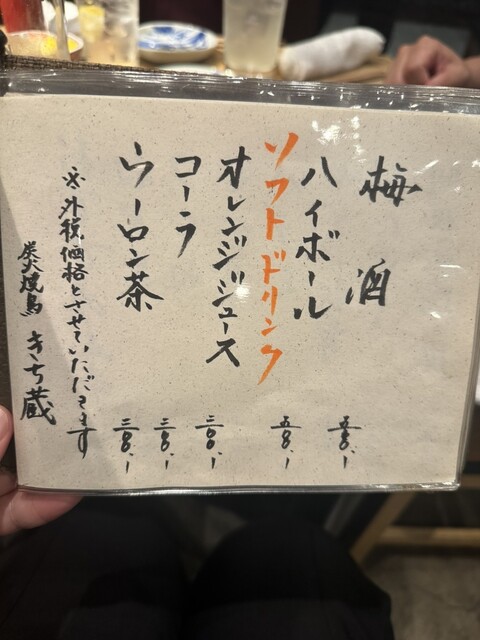 梅酒 五〇〇.-
ハイボール 五〇〇.-
ソフトドリンク
オレンジジュース 三〇〇.-
コーラ 三〇〇.-
ウーロン茶 三〇〇.-
※外税価格とさせていただきます
炭火焼鳥 きち蔵